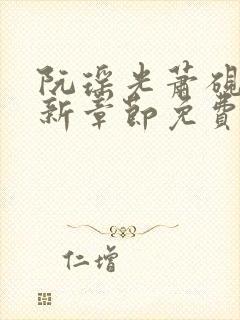 阮瑶光萧砚
新章节免费
仁增